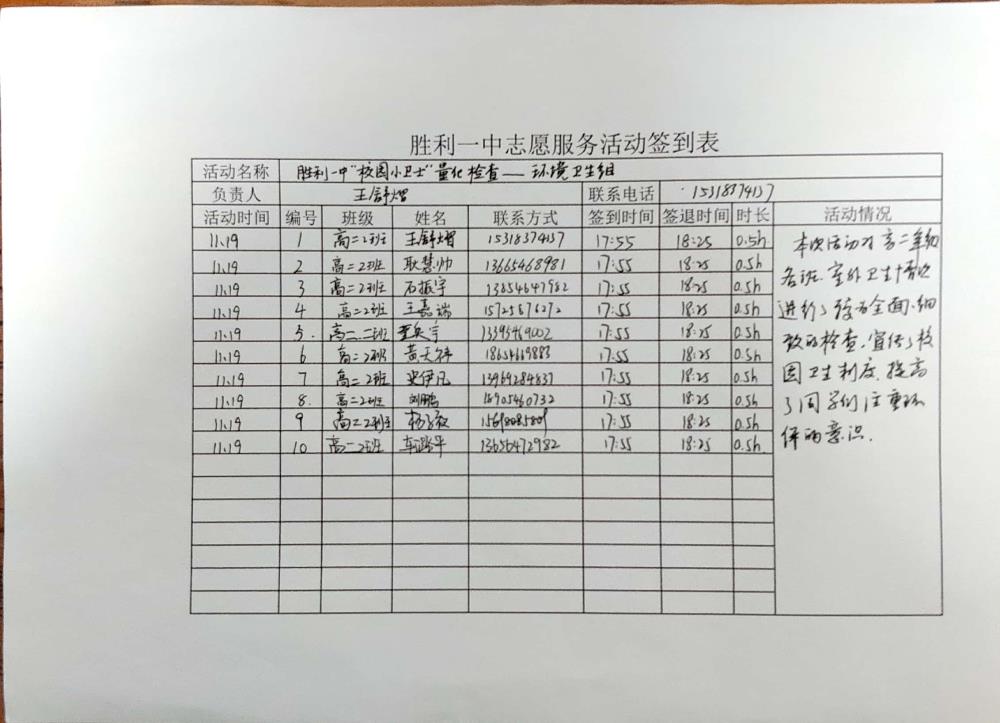 胜利一中志愿服务活动签到表
活动名称 胜利一中"校园小卫士"量化检查——环境卫生组
负责人 王舒熠 联系电话 15318374137
活动时间 编号 班级 姓名 联系方式 签到时间 签退时间 时长 活动情况
11.19 1 高二2班 王舒熠 15318374137 17:55 18:25 0.5h
11.19 2 高二2班 耿慧帅 13665468981 17:55 18:25 0.5h
11.19 3 高二2班 石振宇 13854647982 17:55 18:25 0.5h
11.19 4 高二2班 王嘉瑞 15725876272 17:55 18:25 0.5h
11.19 5. 高二二班 13395469002 17:55 18:25 0.5h
11.19 6 高二2班 黄天祎 18654669883 17:55 18:25 0.5h
11.19 7 高二2班 史伊凡 13969284837 17:55 18:25 0.5h
11.19 8. 高二2班 刘鹏 18905460732 17:55 18:25 0.5h
11.19 9 高二2班 17:55 18:25 0.5h
11.19 10 高二2班 13656472982 17:55 18:25 0.5h
本次活动对高二年级
各班室外卫生情况
进行了较为全面、细
致的检查,宣传了校
园卫生制度,提高
了同学们注重环
保的意识.